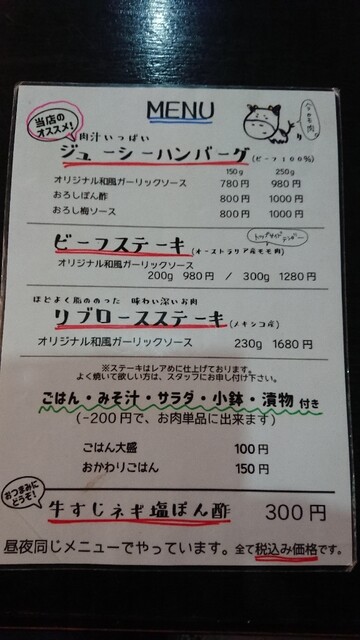 MENU
当店の
オススメ!
肉汁いっぱい
ジューシーハンバーグ(ビーフ100%)
150g 250g
オリジナル和風ガーリックソース 780円 980円
おろしぽん酢 800円 1000円
おろし梅ソース 800円 1000円
ビーフステーキ(オーストラリア産モモ肉)
オリジナル和風ガーリックソース
200g 980円 / 300g 1280円
ほどよく脂ののった 味わい深いお肉
リブロースステーキ(メキシコ産)
オリジナル和風ガーリックソース 230g 1680円
※ステーキはレアめに仕上げております。
よく焼いて欲しい方は、スタッフにお申し付け下さい。
ごはん・みそ汁・サラダ・小鉢・漬物 付き
(-200円で、お肉単品に出来ます)
ごはん大盛 100円
おかわりごはん 150円
おつまみに
どうぞ!
牛すじネギ塩ぽん酢 300円
昼夜同じメニューでやっています。全て税込み価格です。